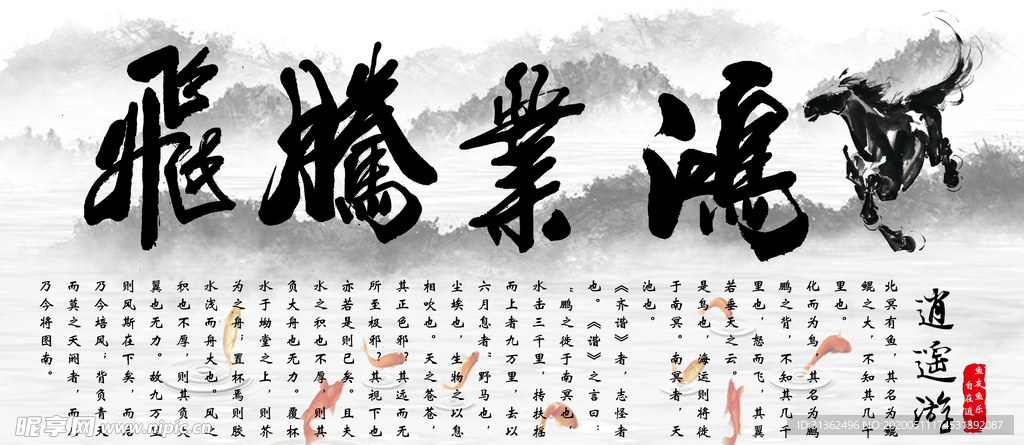 鴻業騰飛
逍遥游
此冥有鱼，其名为鲲
鲲之大，不知其几千
里也。
化而为鸟，其名为鹏
鹏之背，不知其几千
里也，怒而飞，其翼
若垂天之云。
是鸟也，海运则将徙
于南冥。南冥者，天
池也。
《齐谐》者，志怪者
也。《谐》之言曰：
“鹏之徙于南冥也，
水击三千里，抟扶摇
而上者九万里，去以
六月息者”野马也，
尘埃也，生物之以息
相吹也。天之苍苍，
其正色邪？其远而无
所至极邪？其视下也
亦若是则已矣。且夫
水之积也不厚，则其
负大舟也无力。覆杯
水于坳堂之上，则芥
为之舟；置杯焉则胶
水浅而舟大也。风之
积也不厚，则其负大
翼也无力。故九万里
则风斯在下矣，而后
乃今培风；背负青天
而莫之夭阏者，而后
乃今将图南。
昵享网 www.nipic.cn